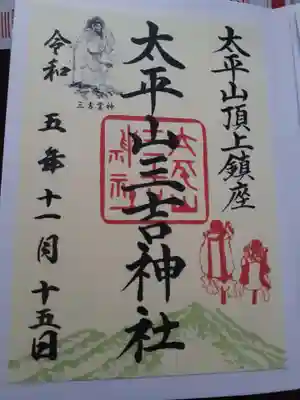 太平山頂上鎮座
太平山三吉神社
三吉霊神
令和五年十一月十五日